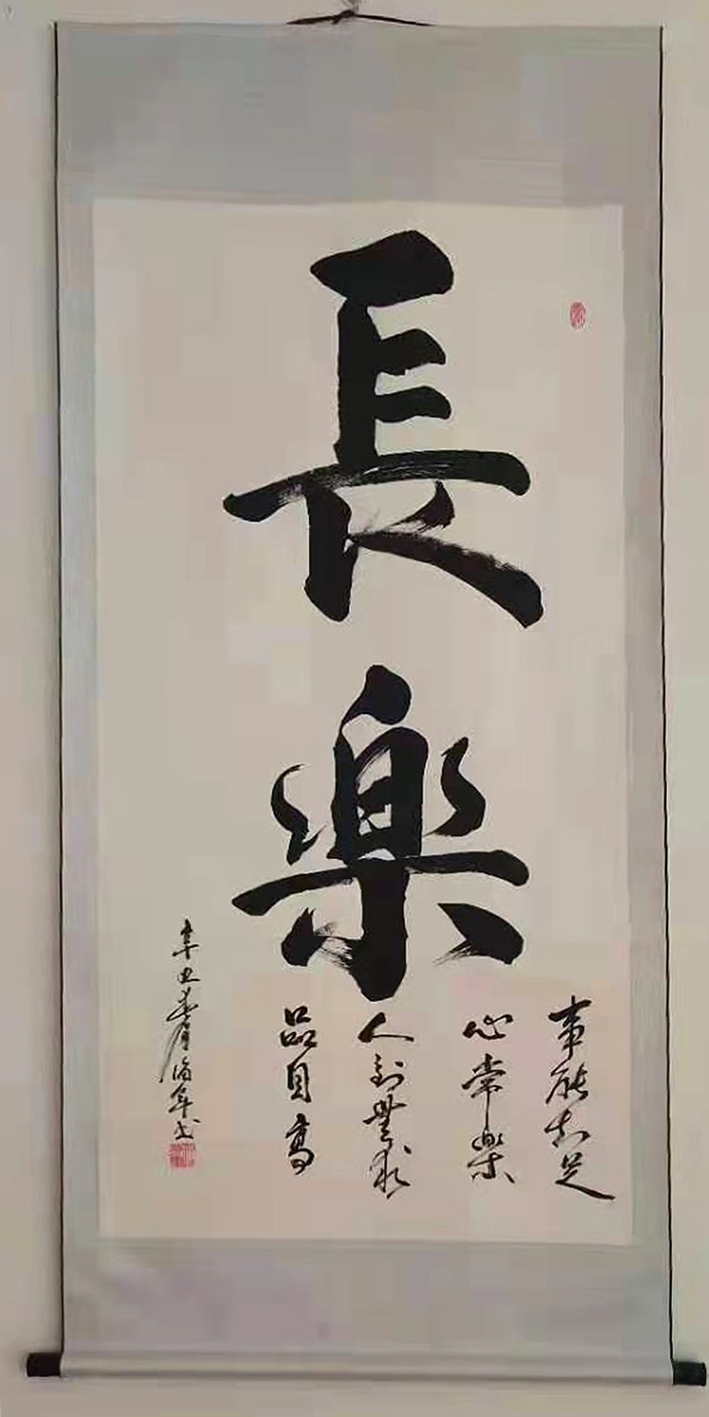 長樂
事能知足
心常樂
人到無求
品自高
辛丑春月
年书